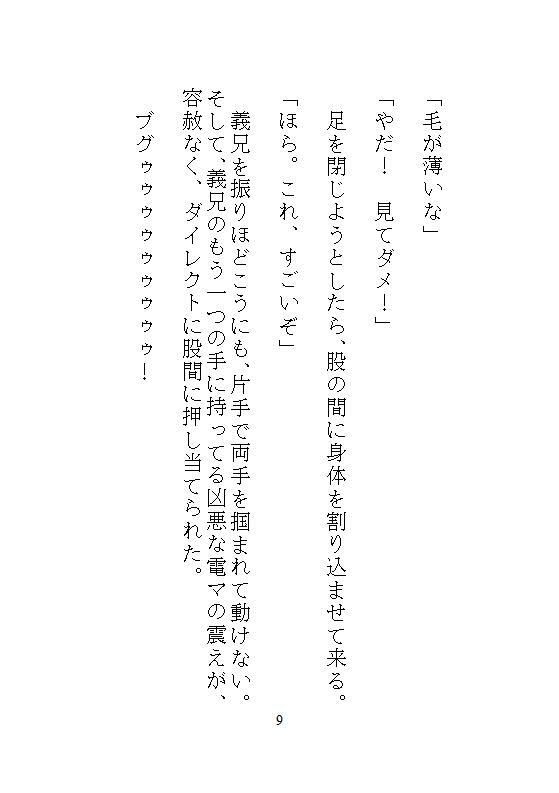 「毛が薄いな」
「やだ！　見てダメ！」
　足を閉じようとしたら、股の間に身体を割り込ませて来る。
「ほら。これ、すごいぞ」
　義兄を振りほどこうにも、片手で両手を掴まれて動けない。
そして、義兄のもう一つの手に持ってる凶悪な電マの震えが、
容赦なく、ダイレクトに股間に押し当てられた。
　ブグゥゥゥゥゥゥゥゥ！
9